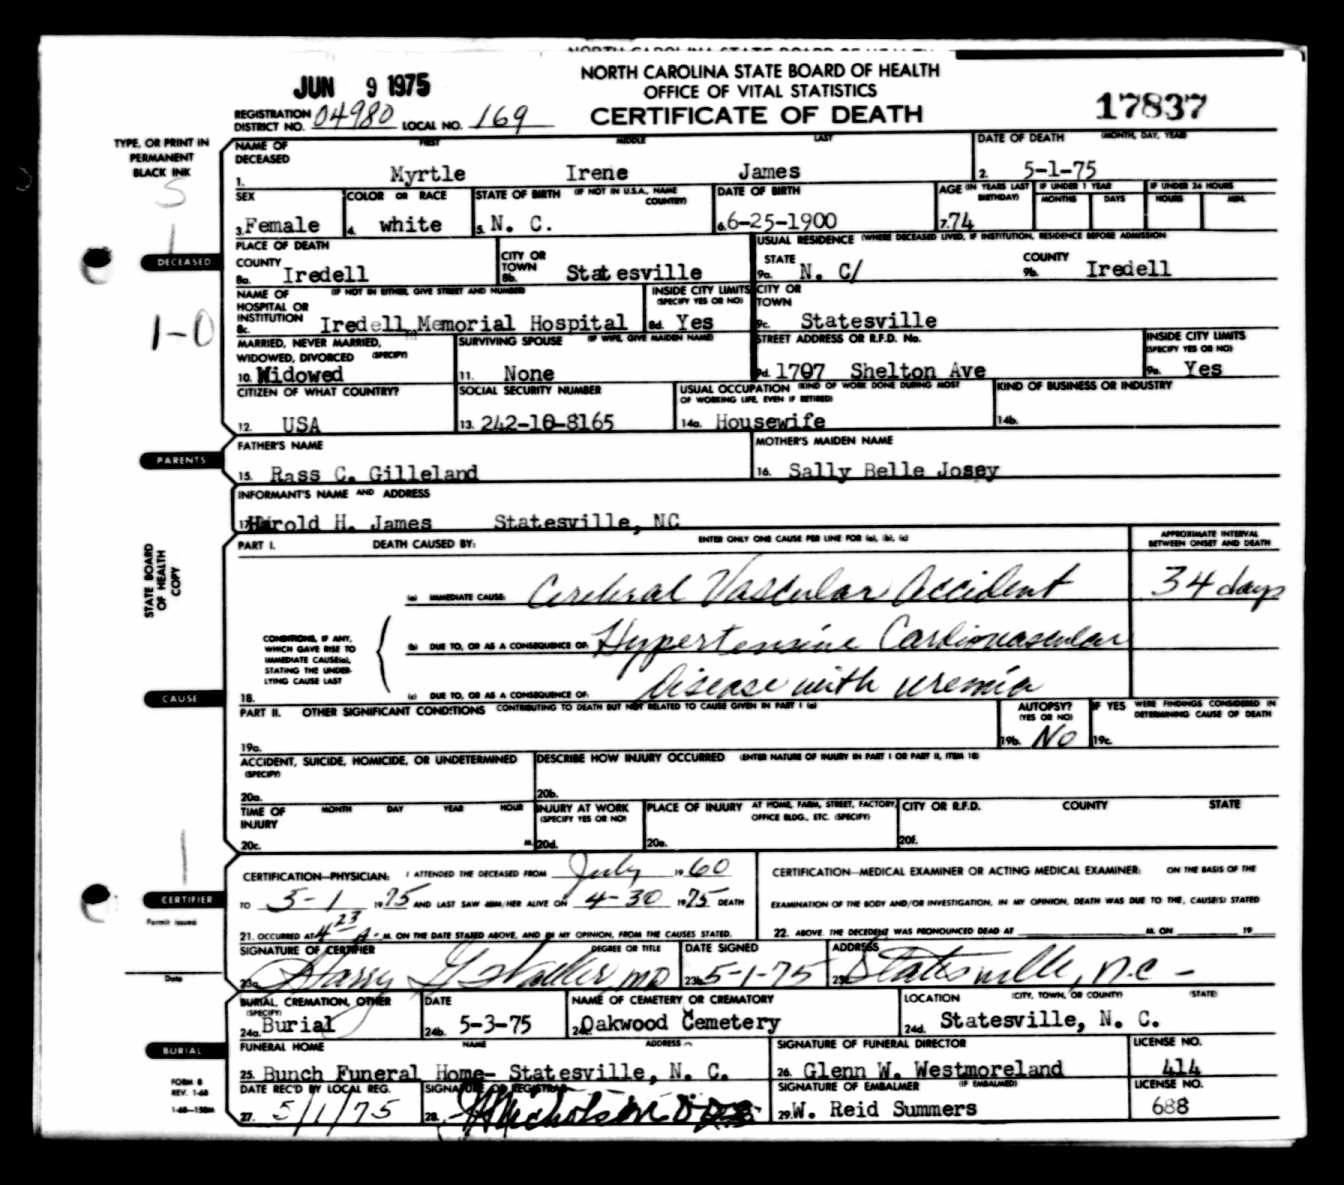 NORTH CAROLINA STATE BOARD OF HEALTH
JUN 9 1975
NORTH CAROLINA STATE BOARD OF HEALTH
OFFICE OF VITAL STATISTICS
CERTIFICATE OF DEATH
17837
REGISTRATION DISTRICT NO. 04980 LOCAL NO. 169
TYPE, OR PRINT IN
PERMANENT
BLACK INK
S
1
DECEASED
1-0
NAME OF DECEASED FIRST MIDDLE LAST
1. Myrtle Irene James
DATE OF DEATH (MONTH, DAY, YEAR)
2. 5-1-75
SEX
3. Female
COLOR OR RACE
4. white
STATE OF BIRTH (IF NOT IN U.S.A., NAME COUNTRY)
5. N. C.
DATE OF BIRTH
6. 6-25-1900
AGE (IN YEARS LAST BIRTHDAY)
7. 74
IF UNDER 1 YEAR
MONTHS DAYS
IF UNDER 24 HOURS
HOURS MIN.
PLACE OF DEATH
COUNTY
8a. Iredell
CITY OR TOWN
8b. Statesville
USUAL RESIDENCE (WHERE DECEASED LIVED, IF INSTITUTION, RESIDENCE BEFORE ADMISSION
STATE
9a. N. C/
COUNTY
9b. Iredell
NAME OF HOSPITAL OR INSTITUTION (IF NOT IN EITHER, GIVE STREET AND NUMBER)
8c. Iredell Memorial Hospital
INSIDE CITY LIMITS (SPECIFY YES OR NO)
8d. Yes
CITY OR TOWN
9c. Statesville
MARRIED, NEVER MARRIED, WIDOWED, DIVORCED (SPECIFY)
10. Widowed
SURVIVING SPOUSE (IF WIFE, GIVE MAIDEN NAME)
11. None
STREET ADDRESS OR R.F.D. No.
9d. 1707 Shelton Ave
INSIDE CITY LIMITS (SPECIFY YES OR NO)
9e. Yes
CITIZEN OF WHAT COUNTRY?
12. USA
SOCIAL SECURITY NUMBER
13. 242-10-8165
USUAL OCCUPATION (KIND OF WORK DONE DURING MOST OF WORKING LIFE, EVEN IF RETIRED)
14a. Housewife
KIND OF BUSINESS OR INDUSTRY
14b.
PARENTS
FATHER'S NAME
15. Rass C. Gilleland
MOTHER'S MAIDEN NAME
16. Sally Belle Josey
INFORMANT'S NAME AND ADDRESS
17. Harold H. James Statesville, NC
STATE BOARD
OF HEALTH
COPY
PART I. DEATH CAUSED BY: ENTER ONLY ONE CAUSE PER LINE FOR (a), (b), (c)
APPROXIMATE INTERVAL
BETWEEN ONSET AND DEATH
(a) IMMEDIATE CAUSE: Cerebral Vascular Accident 34 days
CONDITIONS, IF ANY,
WHICH GAVE RISE TO
IMMEDIATE CAUSE(a),
STATING THE UNDER-
LYING CAUSE LAST
(b) DUE TO, OR AS A CONSEQUENCE OF: Hypertensive Cardiovascular
(c) DUE TO, OR AS A CONSEQUENCE OF: Disease with uremia
CAUSE
18.
PART II. OTHER SIGNIFICANT CONDITIONS CONTRIBUTING TO DEATH BUT NOT RELATED TO CAUSE GIVEN IN PART I (a)
19a.
AUTOPSY? (YES OR NO)
19b. No
IF YES WERE FINDINGS CONSIDERED IN DETERMINING CAUSE OF DEATH
19c.
ACCIDENT, SUICIDE, HOMICIDE, OR UNDETERMINED (SPECIFY)
20a.
DESCRIBE HOW INJURY OCCURRED (ENTER NATURE OF INJURY IN PART I OR PART II, ITEM 18)
20b.
TIME OF INJURY MONTH DAY YEAR HOUR
20c. M.
INJURY AT WORK (SPECIFY YES OR NO)
20d.
PLACE OF INJURY AT HOME, FARM, STREET, FACTORY, OFFICE BLDG., ETC. (SPECIFY)
20e.
CITY OR R.F.D. COUNTY STATE
20f.
CERTIFIER
Permit Issued
Date
CERTIFICATION—PHYSICIAN: I ATTENDED THE DECEASED FROM July 1960
TO 5-1 1975 AND LAST SAW HIM/HER ALIVE ON 4-30 1975 DEATH
21. OCCURRED AT 4 23 A. M. ON THE DATE STATED ABOVE, AND IN MY OPINION, FROM THE CAUSES STATED.
CERTIFICATION—MEDICAL EXAMINER OR ACTING MEDICAL EXAMINER: ON THE BASIS OF THE
EXAMINATION OF THE BODY AND/OR INVESTIGATION, IN MY OPINION, DEATH WAS DUE TO THE, CAUSE(S) STATED
22. ABOVE. THE DECEDENT WAS PRONOUNCED DEAD AT M. ON 19
SIGNATURE OF CERTIFIER DEGREE OR TITLE
23a. Harry G Walker, MD
DATE SIGNED
23b. 5-1-75
ADDRESS
23c. Statesville, N.C. -
BURIAL, CREMATION, OTHER (SPECIFY)
24a. Burial
DATE
24b. 5-3-75
NAME OF CEMETERY OR CREMATORY
24c. Oakwood Cemetery
LOCATION (CITY, TOWN, OR COUNTY) (STATE)
24d. Statesville, N. C.
BURIAL
FORM 8
REV. 1-68
1-68—150M
FUNERAL HOME NAME ADDRESS
25. Bunch Funeral Home- Statesville, N. C.
SIGNATURE OF FUNERAL DIRECTOR
26. Glenn W. Westmoreland
LICENSE NO.
414
DATE REC'D BY LOCAL REG.
27. 5/1/75
SIGNATURE OF REGISTRAR
28. Nicholson
SIGNATURE OF EMBALMER (IF EMBALMED)
29. W. Reid Summers
LICENSE NO.
688